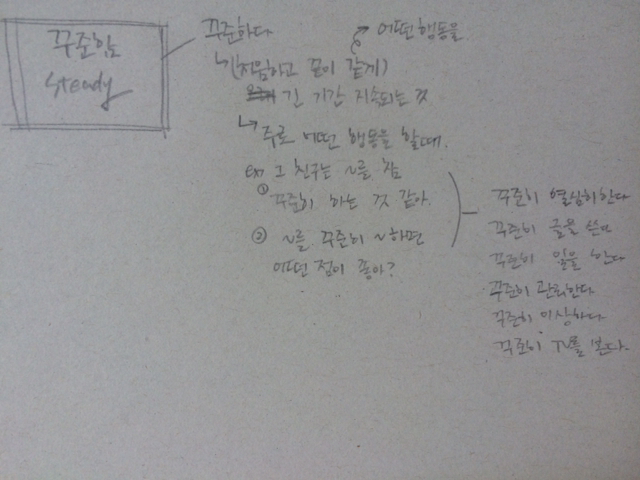 꾸준함
steady
꾸준하다
어떤 행동을
(처음하고 끝이 같게)
긴 기간 지속되는 것
주로 어떤 행동을 할때.
ex) 그 친구는 ~를 참
① 꾸준히 하는 것 같아
② ~를 꾸준히 ~하면
어떤 점이 좋아?
꾸준히 열심히한다
꾸준히 글을 쓴다
꾸준히 일을 한다
꾸준히 관리한다
꾸준히
꾸준히 TV를 본다.